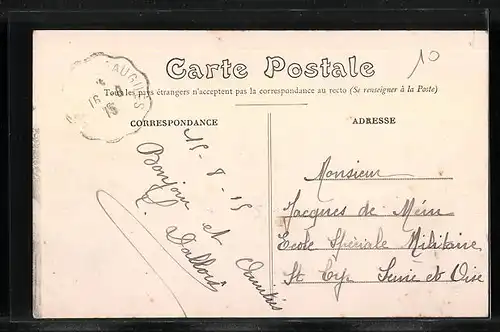 Carte Postale
10
Tous les pays étrangers n'acceptent pas la correspondance au recto (Se renseigner à la Poste)
CORRESPONDANCE
15-8-15
Bonjour et
Amitiés
ADRESSE
Monsieur
Jacques de
Ecole Spéciale Militaire
St Cyr Seine et Oise